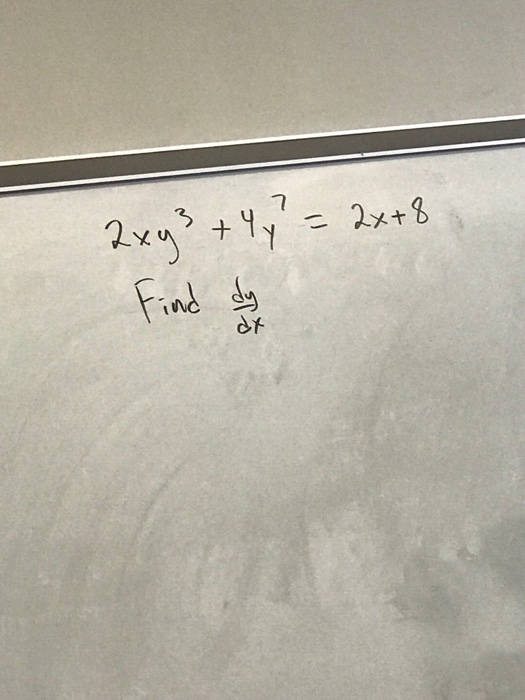 2xy³ + 4y⁷ = 2x+8
Find dy/dx